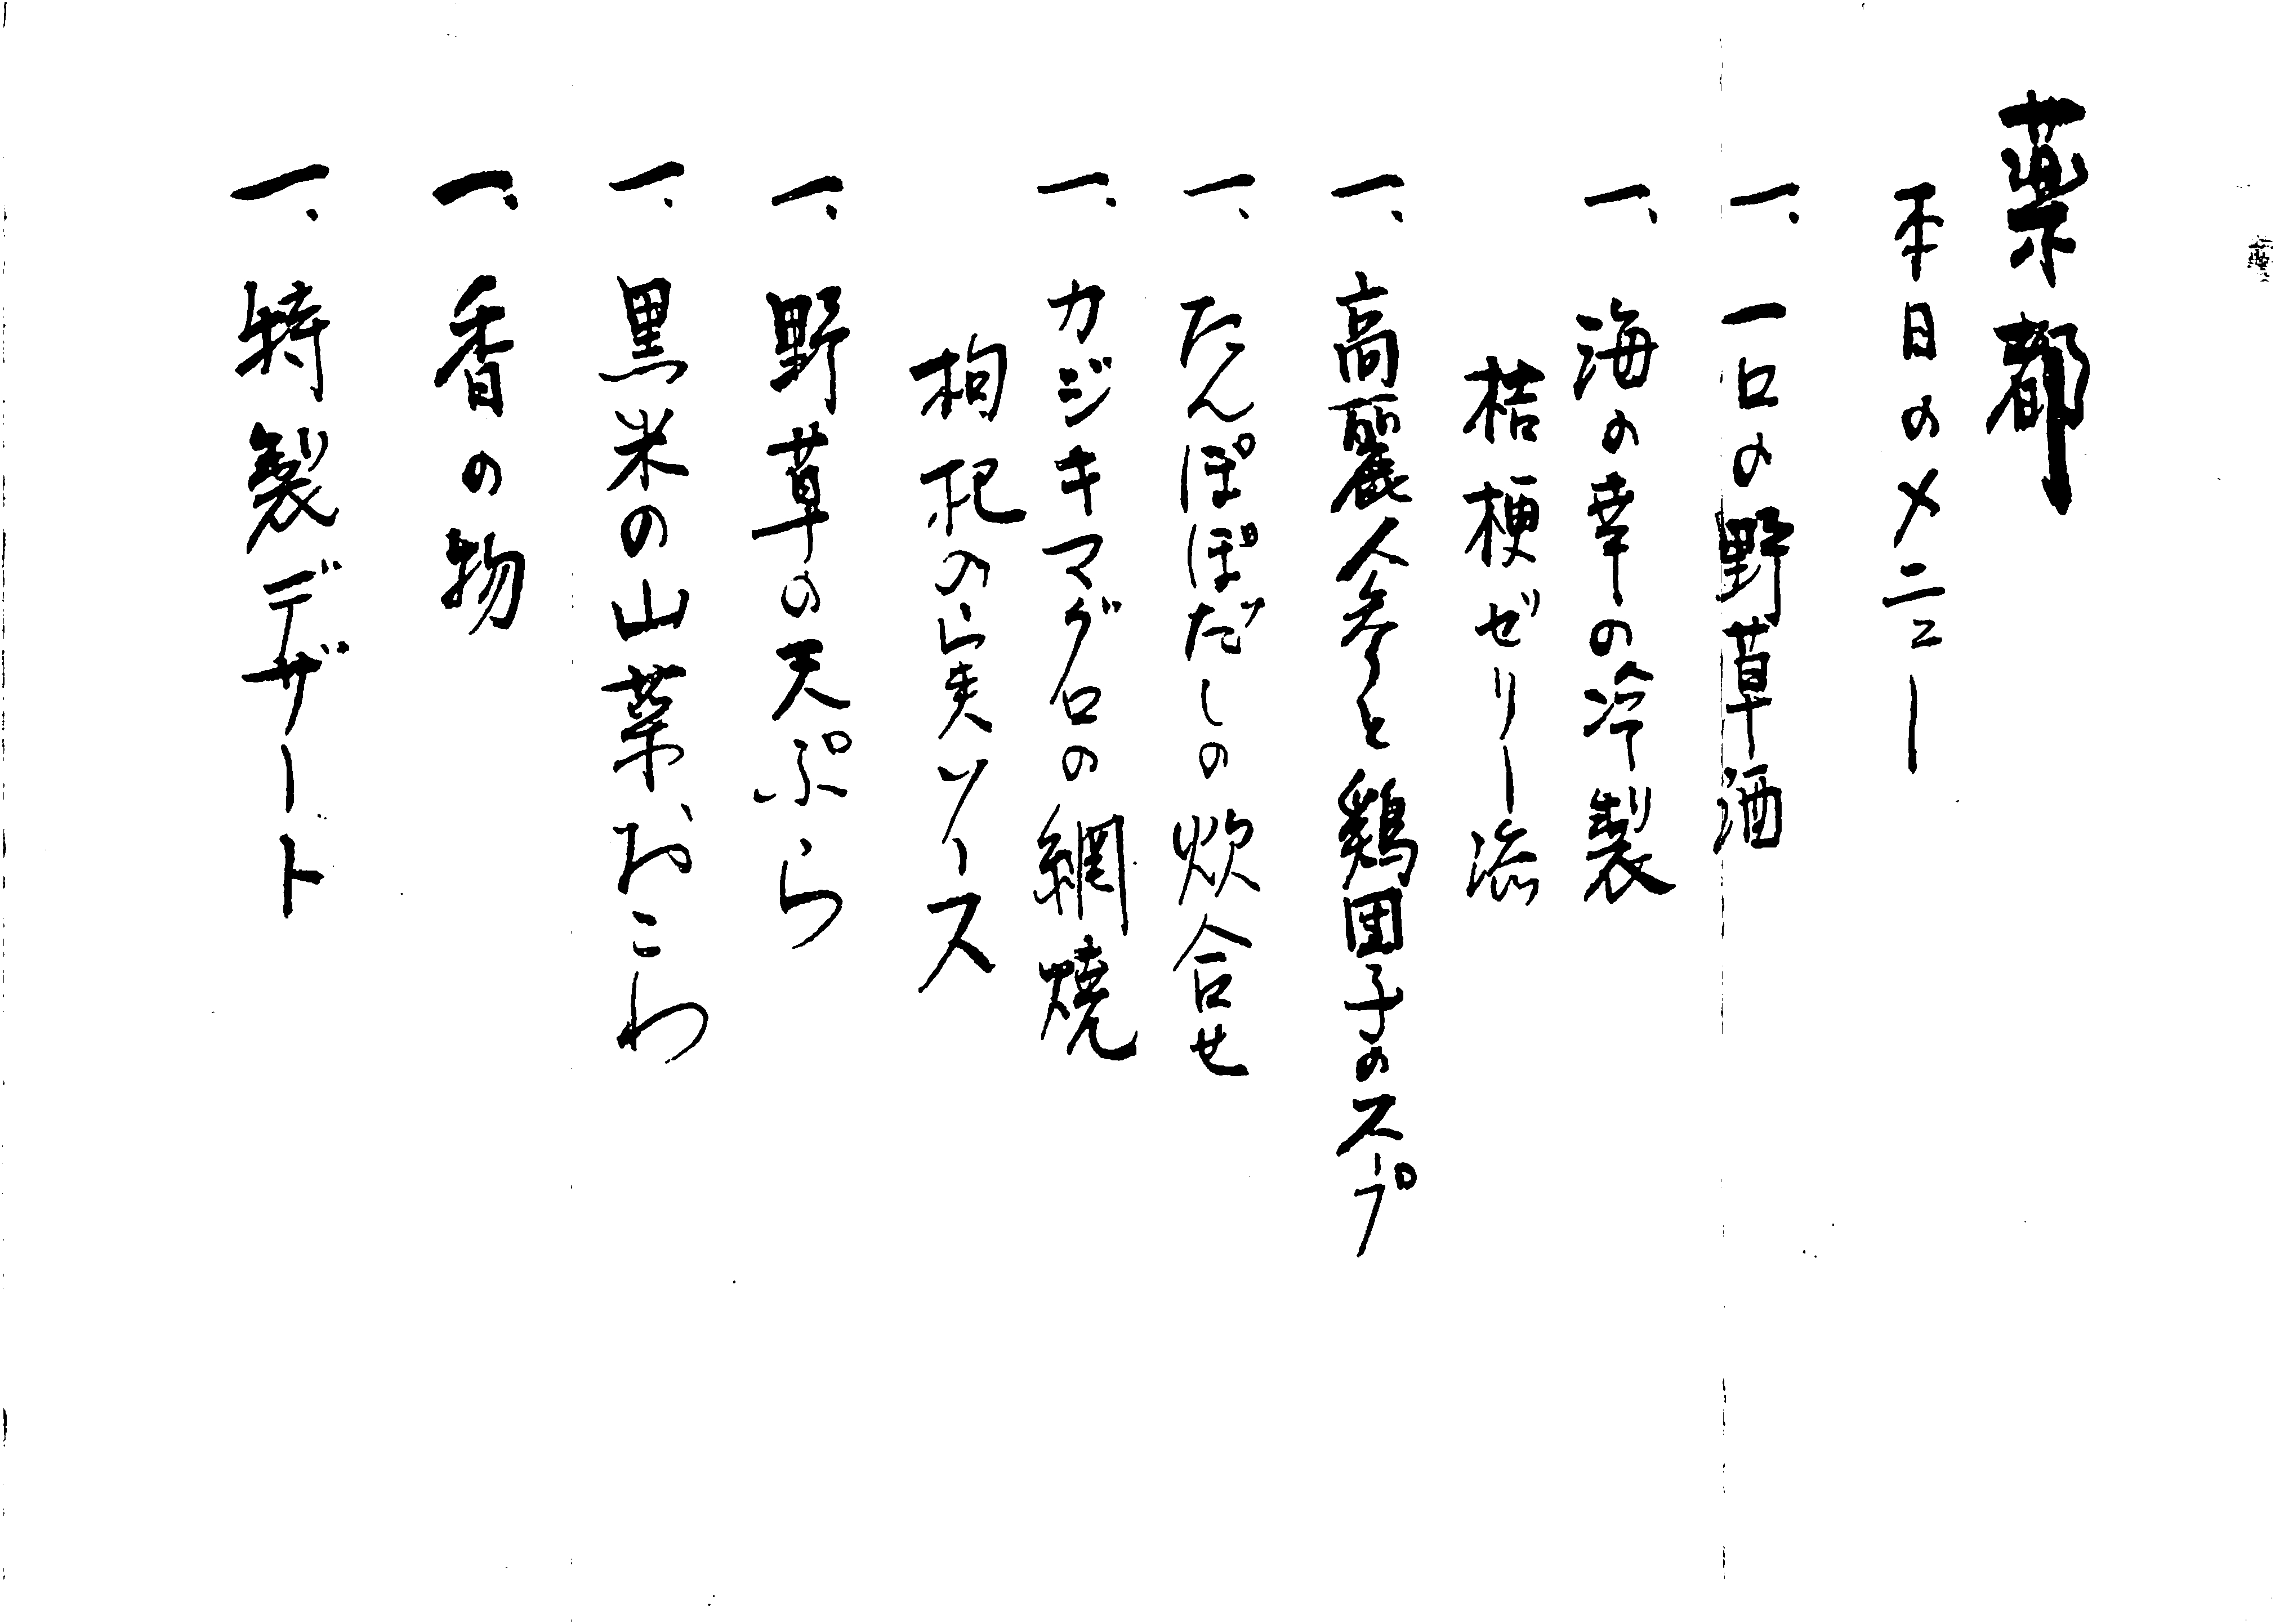 薬都
本日のメニュー
一、一口の野草酒
一、海の幸の冷製
桔梗ゼリー添
一、高麗人参と鶏団子のスープ
一、たんぽぽだしの炊合せ
一、カジキマグロの網焼
枸杞の実ソース
一、野草の天ぷら
一、黒米の山菜おこわ
一、香の物
一、特製デザート